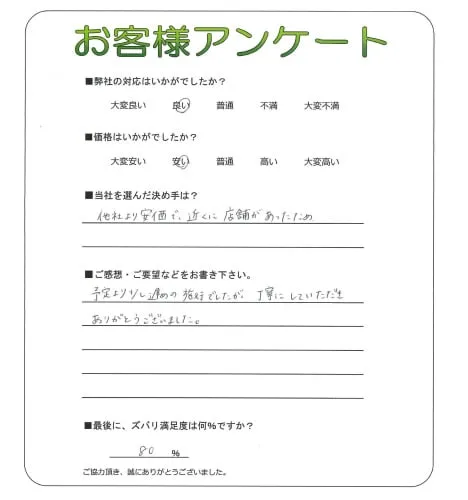 お客様アンケート
■弊社の対応はいかがでしたか？
大変良い 良い 普通 不満 大変不満
■価格はいかがでしたか？
大変安い 安い 普通 高い 大変高い
■当社を選んだ決め手は？
他社より安価で、近くに店舗があったため
■ご感想・ご要望などをお書き下さい。
予定より少し遅めの施行でしたが、丁寧にしていただき
ありがとうございました。
■最後に、ズバリ満足度は何％ですか？
80 ％
ご協力頂き、誠にありがとうございました。